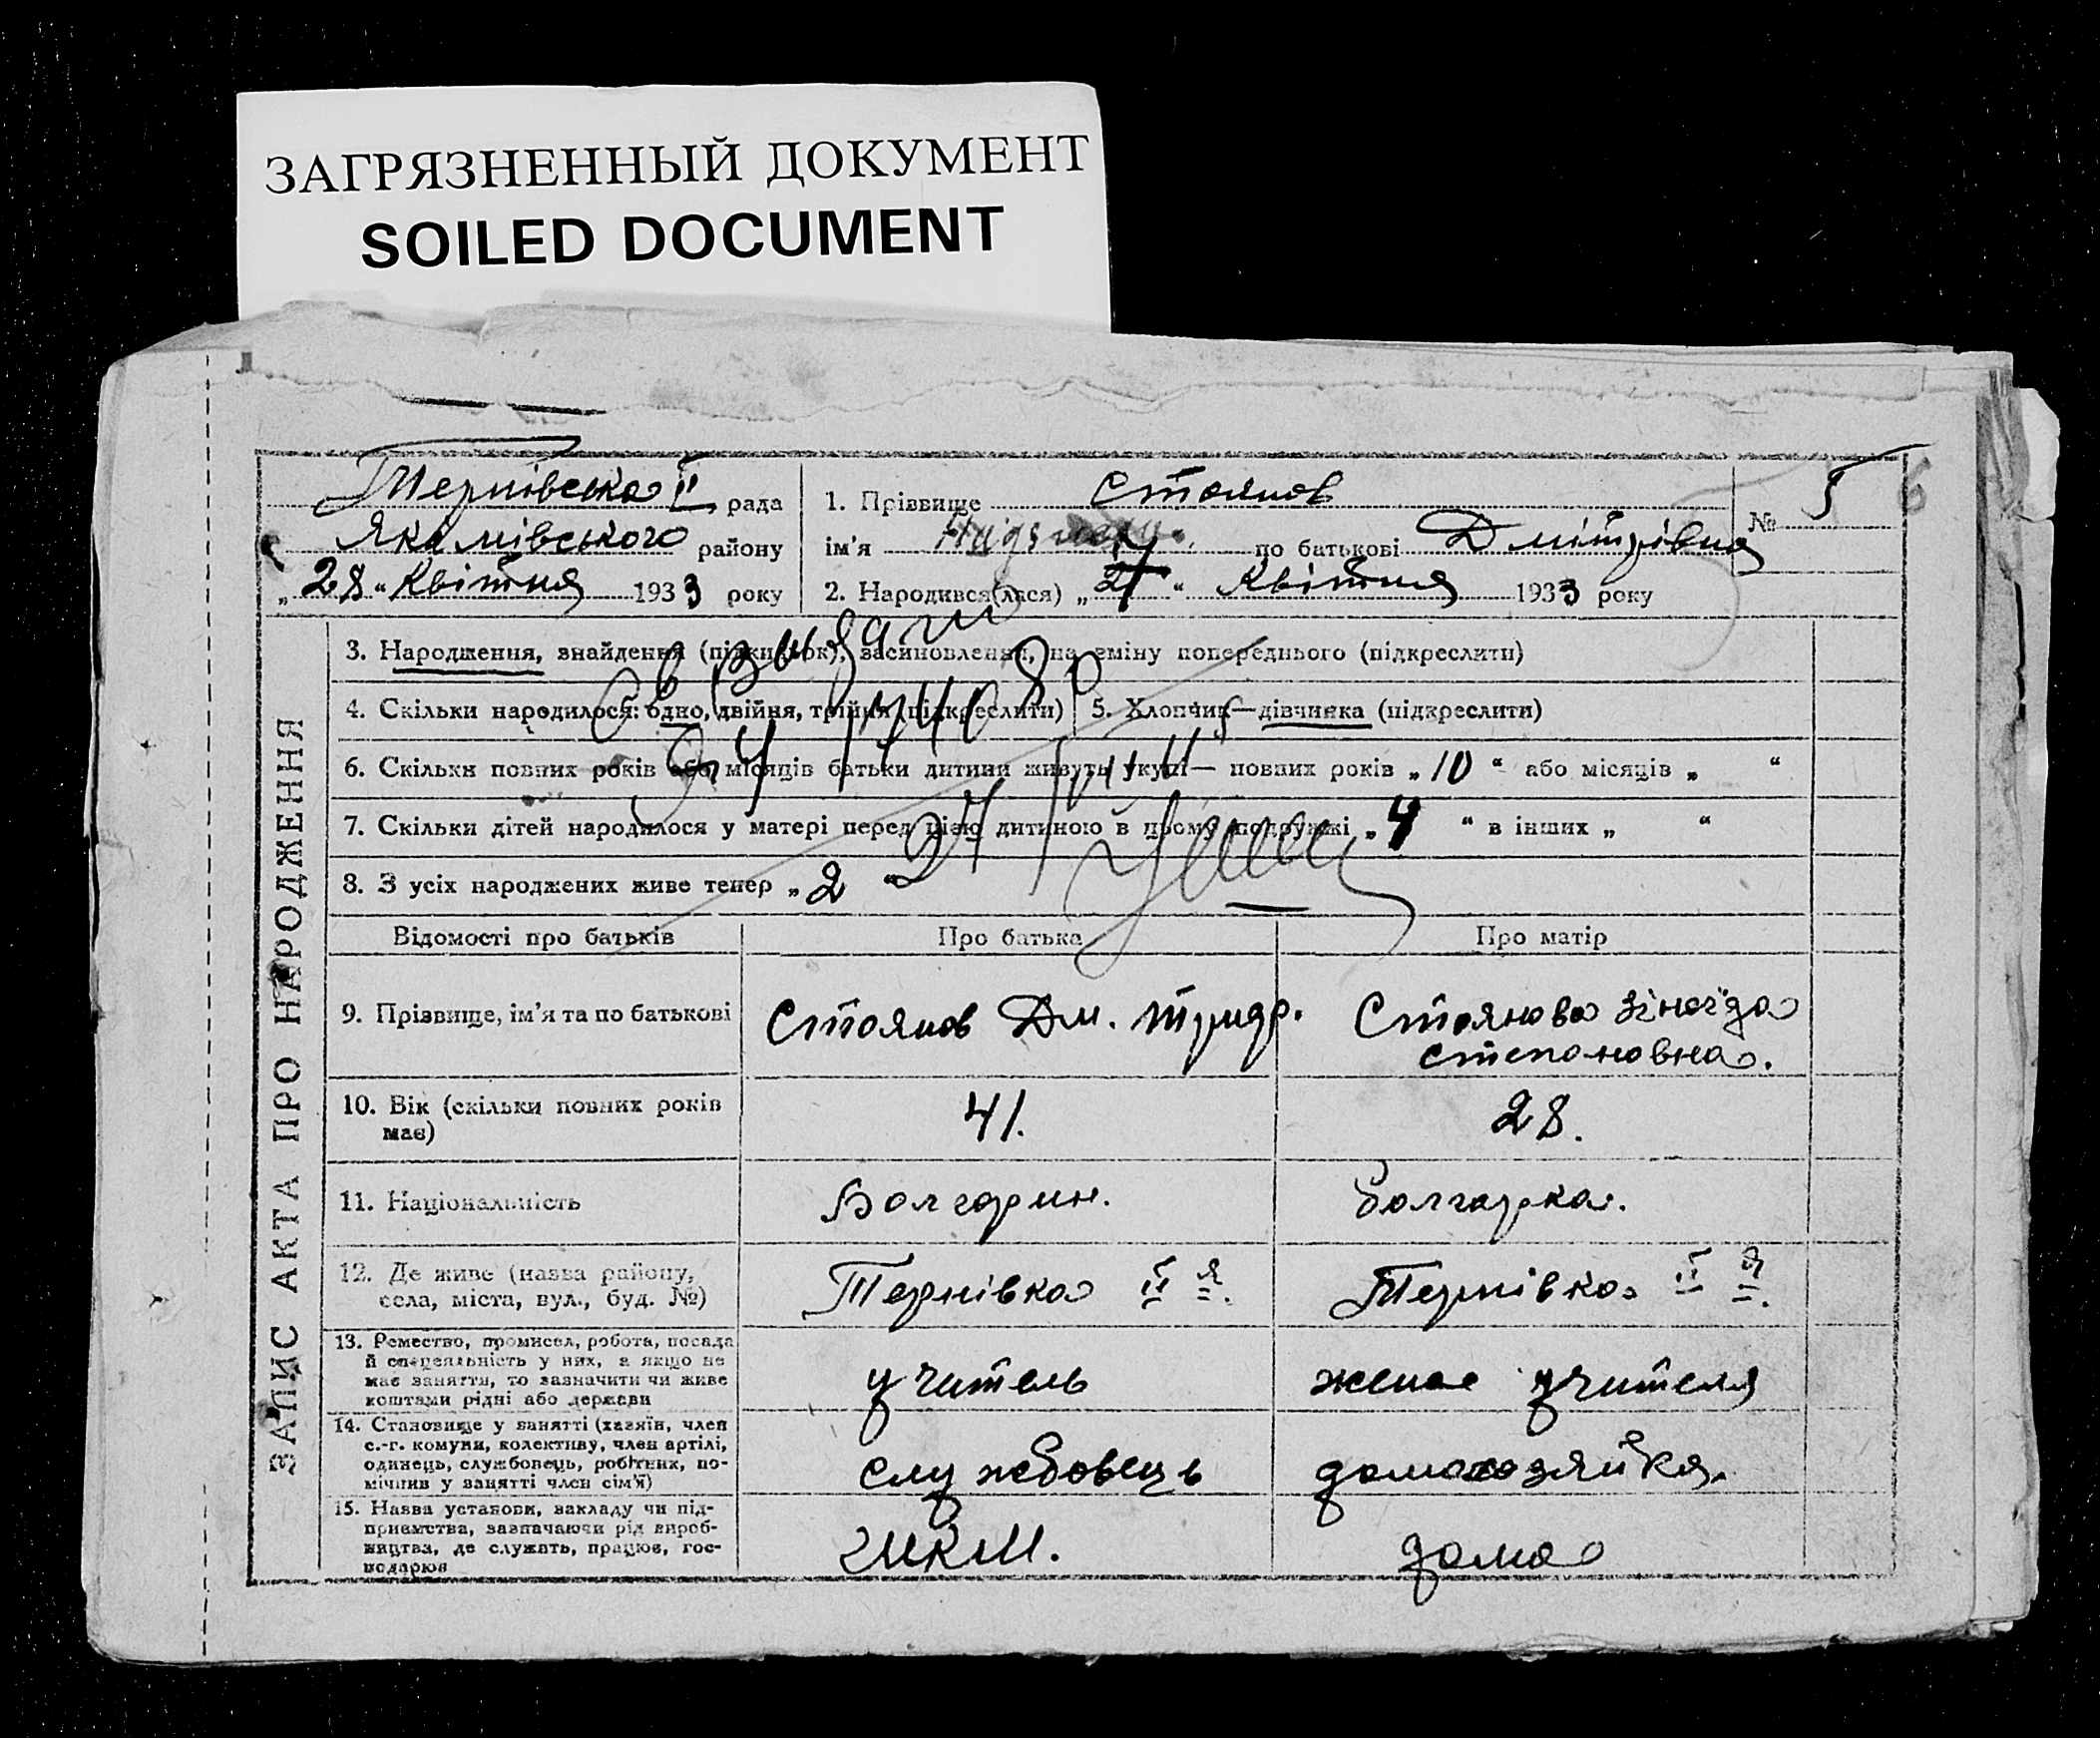 ЗАГРЯЗНЕННЫЙ ДОКУМЕНТ
SOILED DOCUMENT
Тернівска II рада
Якимівського району
„28“ Квітня 1933 року
1. Прізвище Стоянов
ім'я по батькові Дмітрівна
№ 5
2. Народився(лася) „ “ Квітня 1933 року
ЗАПИС АКТА ПРО НАРОДЖЕННЯ
3. Народження, знайдення (підкидьок), засиновлення, на зміну попереднього (підкреслити)
4. Скільки народилося: одно, двійня, трійня (підкреслити)
5. Хлопчик—дівчинка (підкреслити)
6. Скільки повних років або місяців батьки дитини живуть укупі— повних років „10“ або місяців „ “
7. Скільки дітей народилося у матері перед цією дитиною в цьому подружжі „4“ в інших „ “
8. З усіх народжених живе тепер „2“
Відомості про батьків
Про батька
Про матір
9. Прізвище, ім'я та по батькові
Стоянов Дм.
Стоянова Зіноїда
степановна.
10. Вік (скільки повних років
має)
41.
28.
11. Національність
Болгарин.
болгарка.
12. Де живе (назва району,
села, міста, вул., буд. №)
Тернівка II я.
Тернівка II я.
13. Ремество, промисел, робота, посада
й спецеяльність у них, а якщо не
має заняття, то зазначити чи живе
коштами рідні або держави
учитель
жена учителя
14. Становище у занятті (хазяїн, член
с.-г. комуни, колективу, член артілі,
одинець, службовець, робітник, по-
мічник у занятті член сім'ї)
службовець
домохозяйка.
15. Назва установи, закладу чи під-
приємства, зазначаючи рід вироб-
ництва, де служить, працює, гос-
подарює
ШКМ.
дома